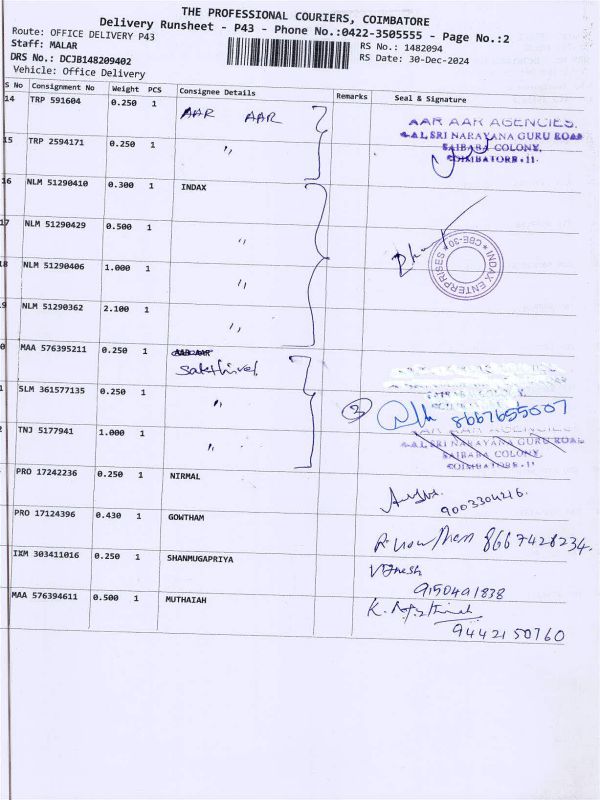 THE PROFESSIONAL COURIERS, COIMBATORE
Delivery Runsheet - P43 - Phone No.:0422-3505555 - Page No.:2
Route: OFFICE DELIVERY P43
Staff: MALAR
RS No.: 1482094
DRS No.: DCJB148209402
RS Date: 30-Dec-2024
Vehicle: Office Delivery
S No Consignment No Weight PCS Consignee Details Remarks Seal & Signature
14 TRP 591604 0.250 1 AAR AAR
AAR AAR AGENCIES,
4-A1, SRI NARAYANA GURU ROAD
SAIBABA COLONY,
COIMBATORE-11.
15 TRP 2594171 0.250 1 〃
16 NLM 51290410 0.300 1 INDAX
17 NLM 51290429 0.500 1 〃
INDAX ENTERPRISES * CBE-30 *
18 NLM 51290406 1.000 1 〃
19 NLM 51290362 2.100 1 〃
0 MAA 576395211 0.250 1 AAR AAR
Sakthivel
1 SLM 361577135 0.250 1 〃
3 8667655007
2 TNJ 5177941 1.000 1 〃
AAR AAR AGENCIES
4-A1, SRI NARAYANA GURU ROAD
SAIBABA COLONY,
COIMBATORE-11
PRO 17242236 0.250 1 NIRMAL
9003304216.
PRO 17124396 0.430 1 GOWTHAM
8667428234.
IXM 303411016 0.250 1 SHANMUGAPRIYA
Vignesh
9150491838
MAA 576394611 0.500 1 MUTHAIAH
9442150760